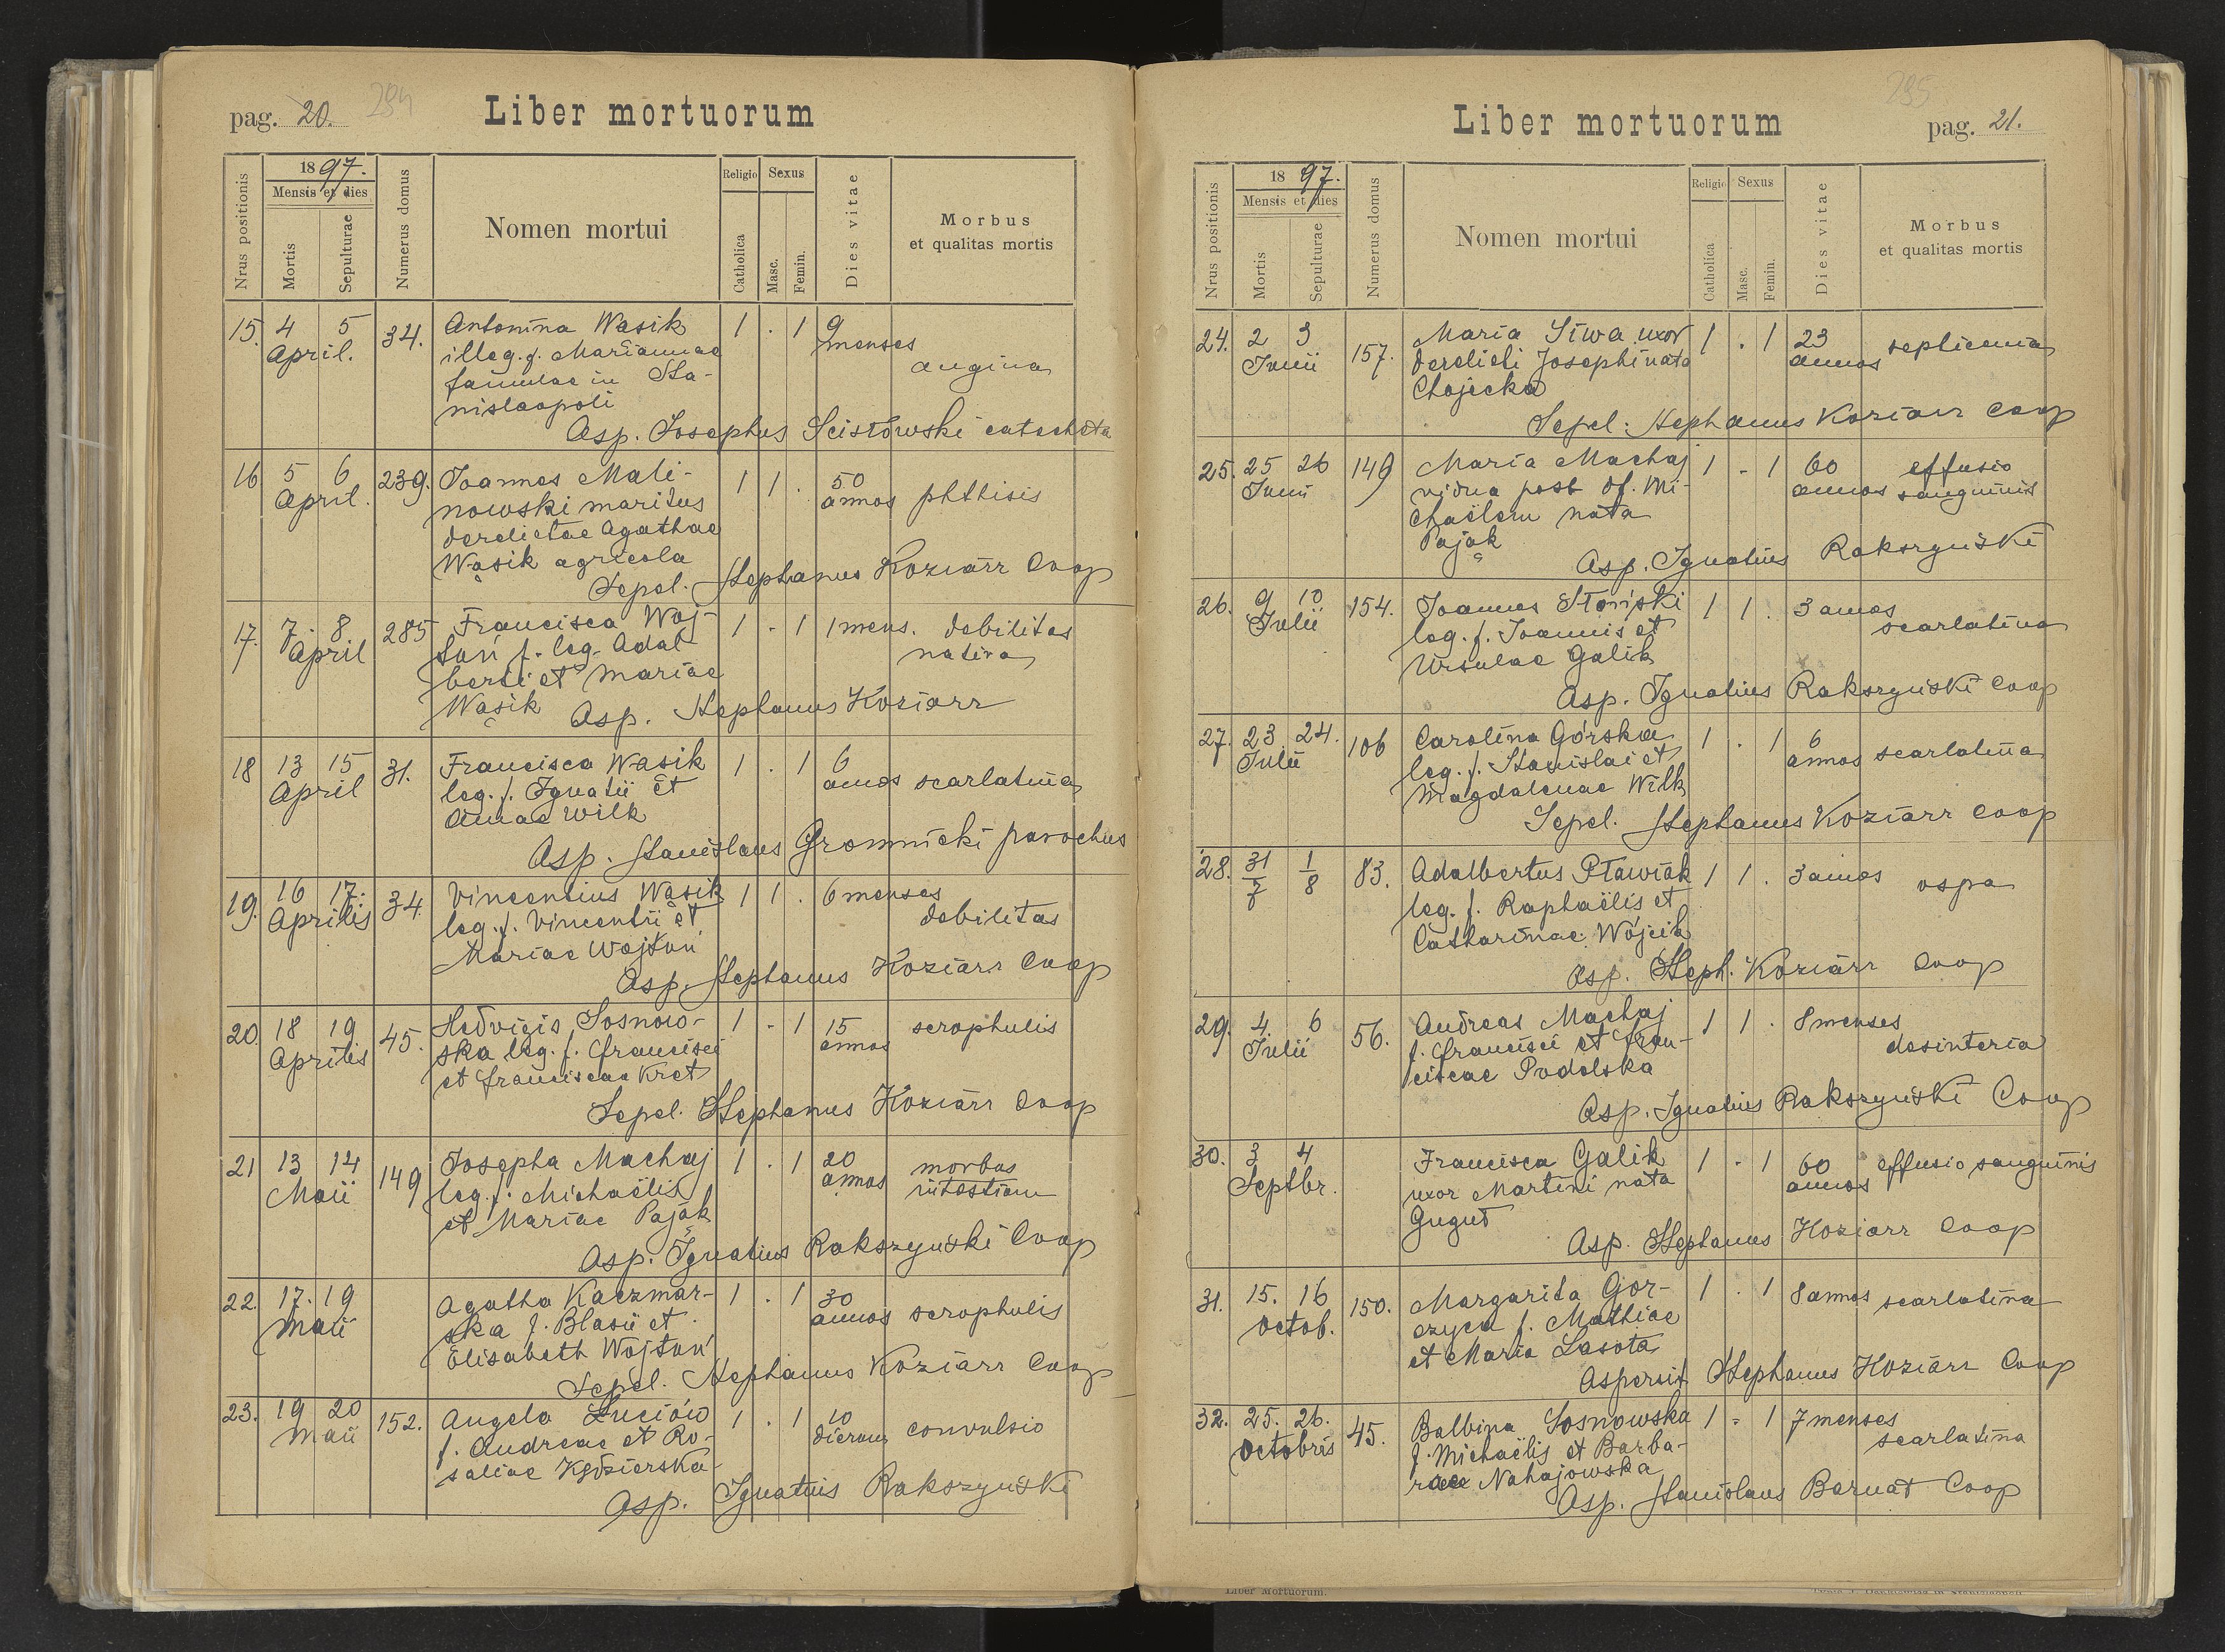 pag. 20. 294
Liber mortuorum
Nrus positionis
1897.
Mensis et dies
Mortis
Sepulturae
Numerus domus
Nomen mortui
Religio
Catholica
Sexus
Masc.
Femin.
Dies vitae
Morbus
et qualitas mortis
15. 4 5 34. Antonina Wasik 1 . 1 9
April. illeg. f. Mariannae menses
famulae in Sta- angina
nislaopoli
Asp. Josephus Scisłowski catecheta
16 5 6 239. Joannes Mali- 1 1 . 50
April. nowski maritus annos phthisis
derelictae Agathae
Wąsik agricola
Sepel. Stephanus Koziarz Coop
17. 7. 8. 285 Francisca Woj- 1 - 1 1 mens. debilitas
April tuń f. leg. Adal- nativa
berti et Mariae
Wąsik Asp. Stephanus Koziarz
18 13 15 31. Francisca Wasik 1 . 1 6
April leg. f. Ignatii et annos scarlatina
Annae Wilk
Asp. Stanislaus Gromnicki parochus
19. 16 17. 34. Vincentius Wąsik 1 1 . 6 menses
Aprilis leg. f. Vincentii et debilitas
Mariae Wojtuń
Asp. Stephanus Koziarz Coop
20. 18 19 45. Hedvigis Sosnow- 1 - 1 15 scrophulis
Aprilis ska leg. f. Francisci annos
et Franciscae Kret
Sepel. Stephanus Koziarz Coop
21 13 14 149 Josepha Machaj 1 . 1 20 morbus
Maii leg. f. Michaëlis annos
et Mariae Pająk
Asp. Ignatius Rakszyński Coop
22. 17. 19 Agatha Kaczmar- 1 . 1 30
Maii ska f. Blasii et annos scrophulis
Elisabeth Wojtuń
Sepel. Stephanus Koziarz Coop
23. 19 20 152. Angela Łuciów 1 . 1 10
Maii f. Andreae et Ro- dierum convulsio
saliae Kędzierska
Asp. Ignatius Rakszyński
295
Liber mortuorum
pag. 21.
Nrus positionis
1897.
Mensis et dies
Mortis
Sepulturae
Numerus domus
Nomen mortui
Religio
Catholica
Sexus
Masc.
Femin.
Dies vitae
Morbus
et qualitas mortis
24. 2 3 157. Maria Siwa uxor 1 . 1 23 septicemia
Junii derelicti Josephi nata annos
Chojecka
Sepel. Stephanus Koziarz Coop
25. 25 26 149 Maria Machaj 1 - 1 60 effusio
Junii vidua post df. Mi- annos sanguinis
chaëlem nata
Pająk
Asp. Ignatius Rakszyński
26. 9 10 154. Joannes Słoński 1 1 . 3 annos
Julii leg. f. Joannis et scarlatina
Ursulae Galik
Asp. Ignatius Rakszyński Coop
27. 23 24. 106 Carolina Górska 1 . 1 6
Julii leg. f. Stanislai et annos scarlatina
Magdalenae Wilk
Sepel. Stephanus Koziarz Coop
28. 31/7 1/8 83. Adalbertus Pławiak 1 1 . 3 annos ospa
leg. f. Raphaëlis et
Catharinae Wójcik
Asp. Steph. Koziarz Coop
29. 4. 6 56. Andreas Machaj 1 1 . 8 menses
Julii f. Francisci et Fran- desinteria
ciscae Podolska
Asp. Ignatius Rakszyński Coop
30. 3 4 Francisca Galik 1 - 1 60 effusio sanguinis
Septbr. uxor Martini nata annos
Gugut
Asp. Stephanus Koziarz Coop
31. 15. 16 150. Margarita Gor- 1 . 1 8 annos scarlatina
Octob. czyca f. Mathiae
et Maria Lasota
Aspersit Stephanus Koziarz Coop
32. 25. 26. 45. Balbina Sosnowska 1 - 1 7 menses
Octobris f. Michaëlis et Barba- scarlatina
rae Nahajowska
Asp. Stanislaus Barnat Coop
Liber Mortuorum.